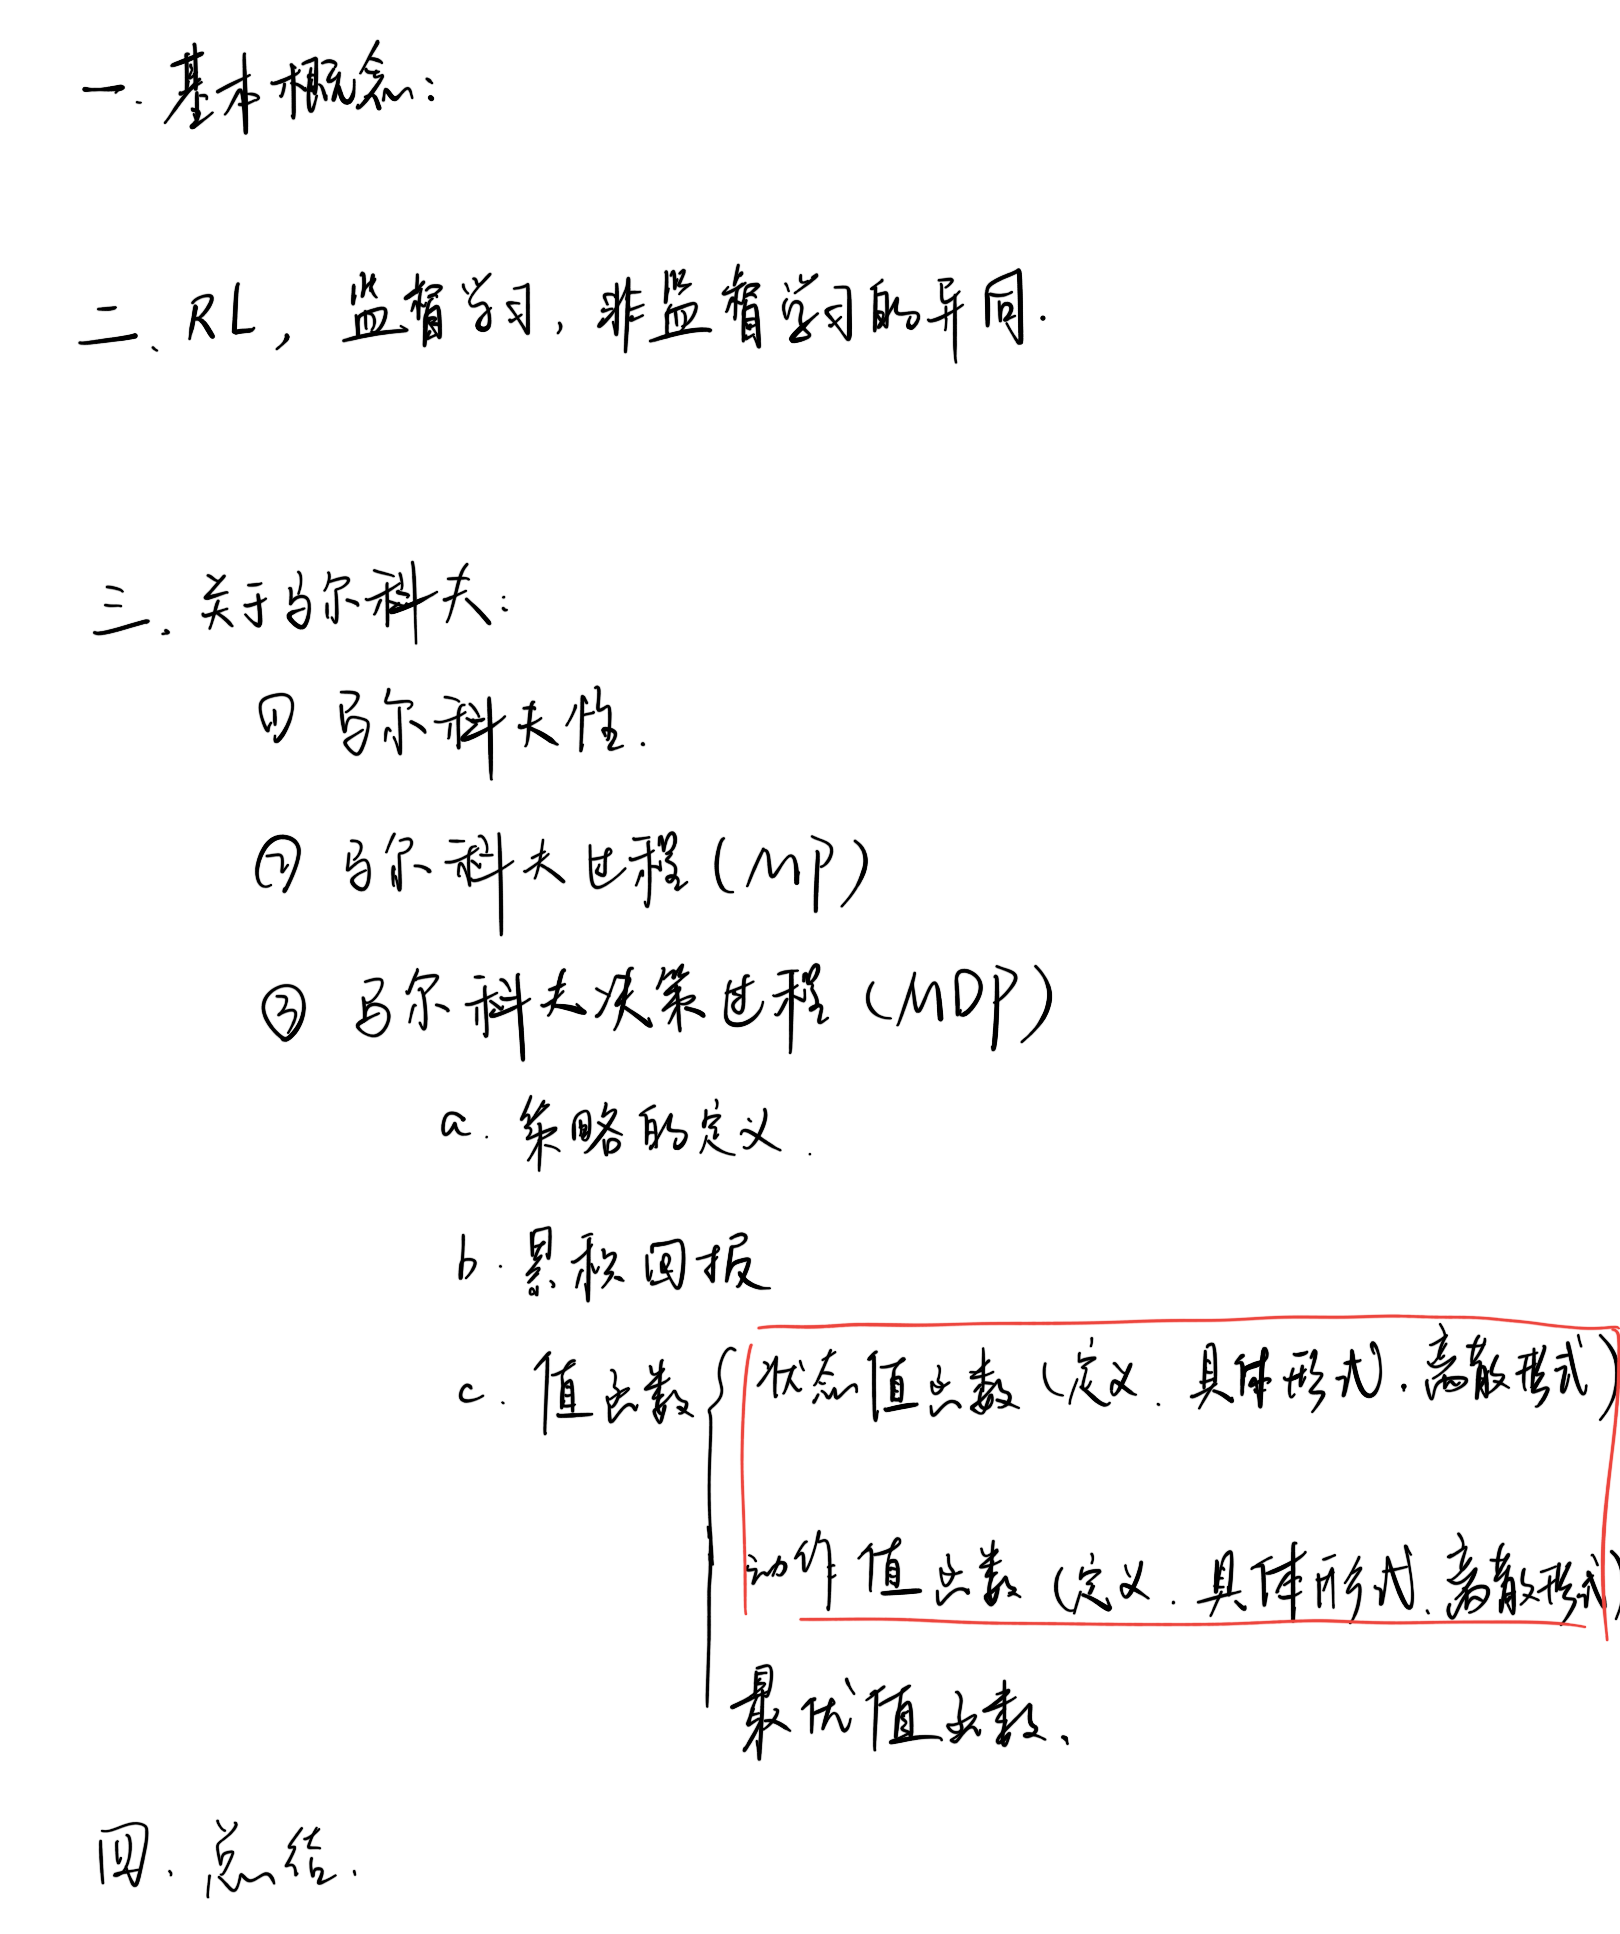 一. 基本概念:
二、RL, 监督学习, 非监督学习的异同.
三. 关于马尔科夫:
① 马尔科夫性.
② 马尔科夫过程(MP)
③ 马尔科夫决策过程(MDP)
a. 策略的定义.
b. 累积回报
c. 值函数
状态值函数(定义. 具体形式. 离散形式)
动作值函数(定义. 具体形式. 离散形式)
最优值函数、
四. 总结.